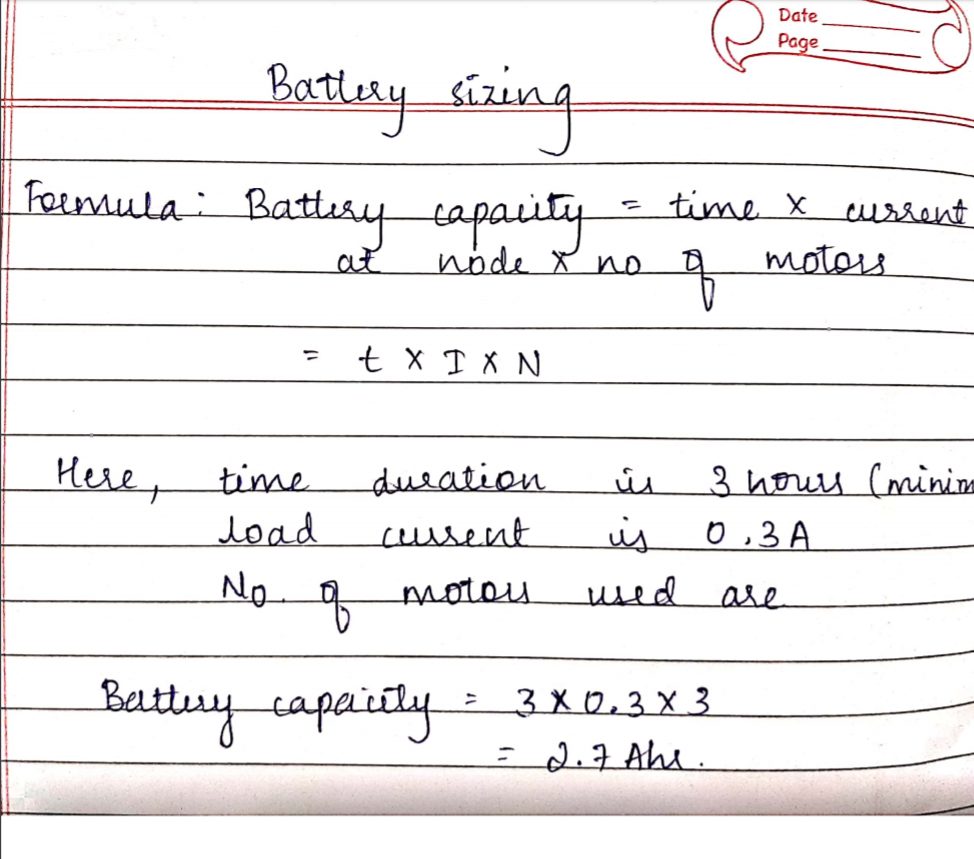 Date
Page
Battery sizing
Formula: Battery capacity = time x current
at node x no of motors
= t x I x N
Here, time duration is 3 hours (minim
load current is 0.3A
No. of motors used are
Battery capacity = 3 x 0.3 x 3
= 2.7 Ahr.